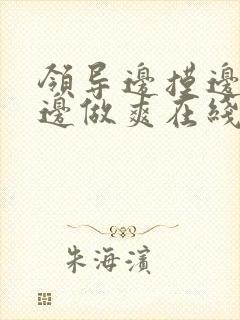 領导邊摸邊
邊做爽在綫
朱海濱